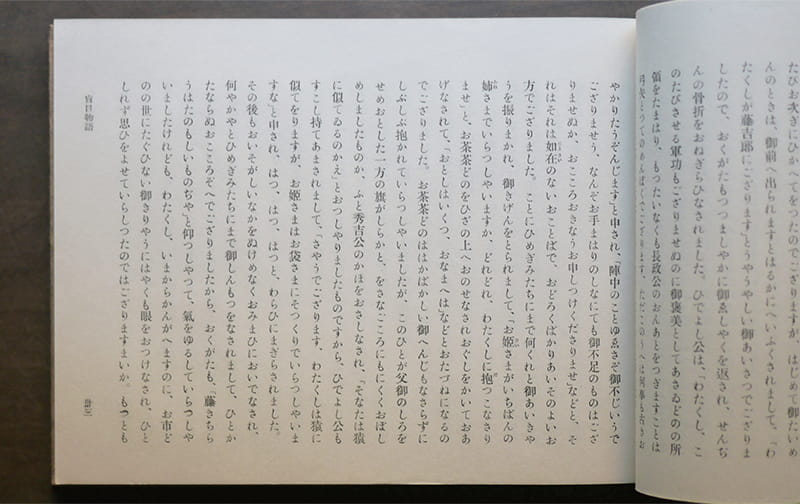 たびお次ぎにひかへてをつたのでござりますが、はじめて御たいめ
んのときは、御前へ出られますとはるかにへいふくされまして、「わ
たくしが藤吉郎にござります」とうやうやしい御あいさつでござりま
したので、おくがたもつつましやかに御ゑしやくを返され、せんぢ
んの骨折をおねぎらひなされました。ひでよし公は、「わたくし、こ
のたびさせる軍功もござりませぬのに御褒美としてあさゐどのの所
領をたまはり、もつたいなくも長政公のおんあとをつぎますことは
弓矢とつてのめんぼくでござります、ただこのうへは何事も古きお
やかりたうぞんじます」と申され、「陣中のことゆゑさぞ御不じいうで
ござりませう、なんぞお手まはりのしなにても御不足のものはござ
りませぬか、おこころおきなうお申しつけくださりませ」などと、そ
れはそれは如在のないおことばで、おどろくばかりあいそのよいお
方でござりました。ことにひめぎみたちにまで何くれと御あいきや
うを振りまかれ、御きげんをとられまして、「お姫さまがいちばんの
姉さまでいらつしやいますか、どれどれ、わたくしに抱つこなさり
ませ」と、お茶々どのをひざの上へおのせなされおぐしをかいておあ
げなされて、「おとしはいくつ、おなまへは」などとおたづねになるの
でござりました。お茶々どのははかばかしい御へんじもなさらずに
しぶしぶ抱かれていらつしやいましたが、このひとが父御のしろを
せめおとした一方の旗がしらかと、をさなごころにもにくくおぼし
めしましたものか、ふと秀吉公のかほをおさしなされ、「そなたは猿
に似てゐるのかえ」とおつしやりましたものですから、ひでよし公も
すこし持てあまされまして、「さやうでござります、わたくしは猿に
似てをりますが、お姫さまはお袋さまにそつくりでいらつしやいま
すな」と申され、はつ、はつ、はつと、わらひにまぎらされました。
その後もおいそがしいなかをぬけめなくおみまひにおいでなされ、
何やかやとひめぎみたちにまで御しんもつをなされまして、ひとか
たならぬおこころぞへでござりましたから、おくがたも、「藤きちら
うはたのもしいものぢや」と仰つしやつて、氣をゆるしていらつしや
いましたけれども、わたくし、いまからかんがへますのに、お市ど
のの世にたぐひない御きりやうにはやくも眼をおつけなされ、ひと
しれず思ひをよせていらしつたのではござりますまいか。もつとも
盲目物語